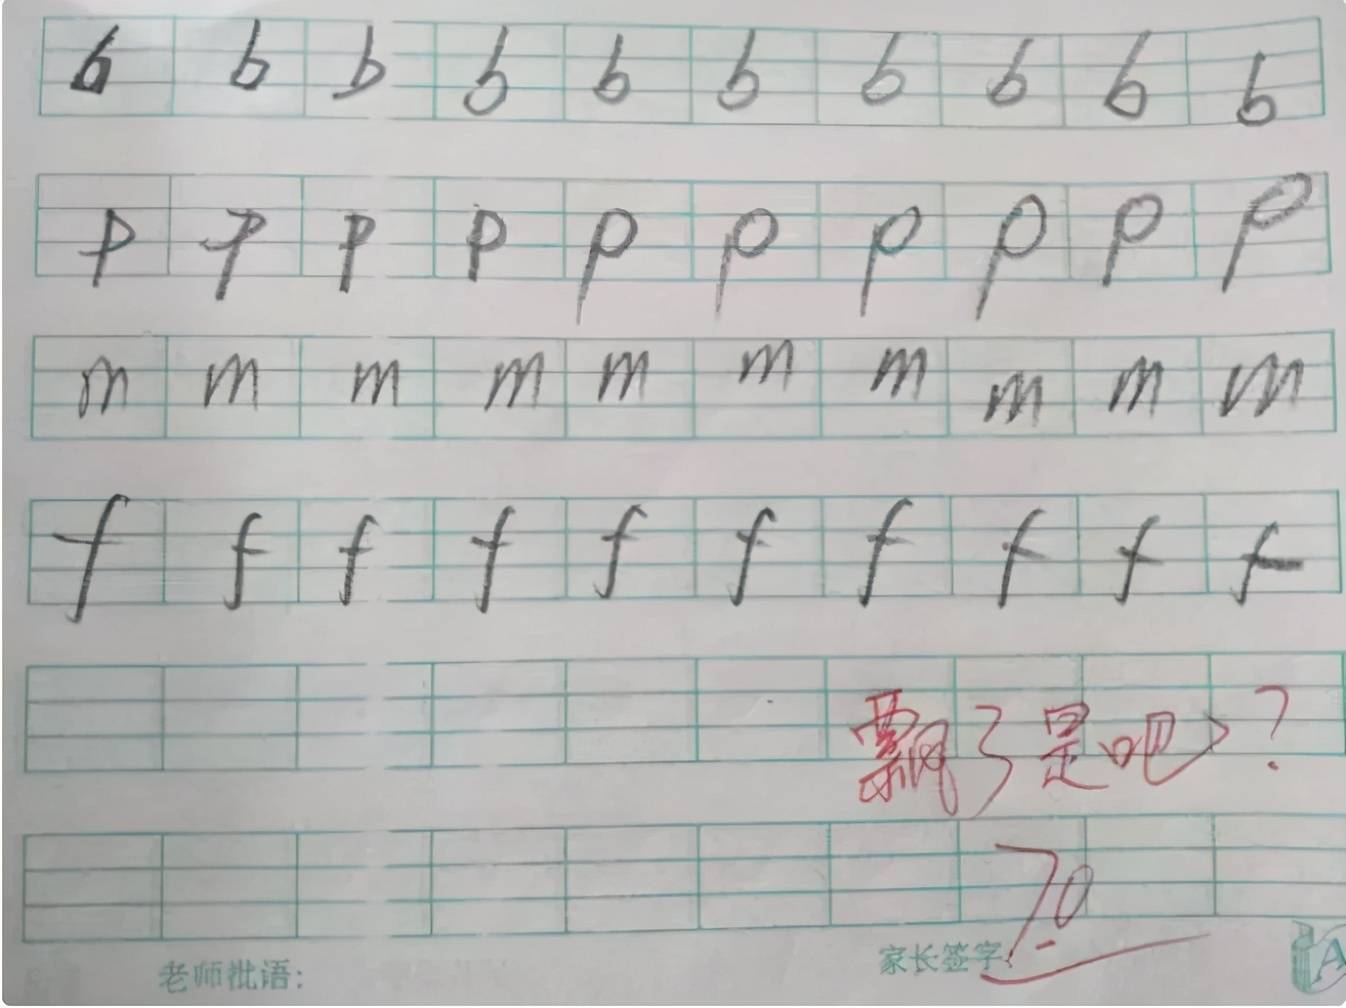 b b b b b b b b b b
p p p p p p p p p p
m m m m m m m m m m
f f f f f f f f f f
飘了是吧?
70
老师批语: 家长签字:
A